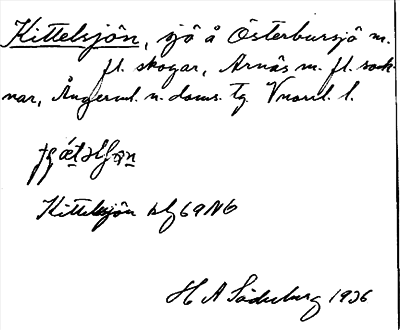 Kittelsjön, sjö å Österbursjö m.
fl. skogar, Arnäs m. fl. sock-
nar, Ångerml. n. doms. Tg. Vnorrl. l.
Kittelsjön blg 69 NG
H A Söderberg 1936